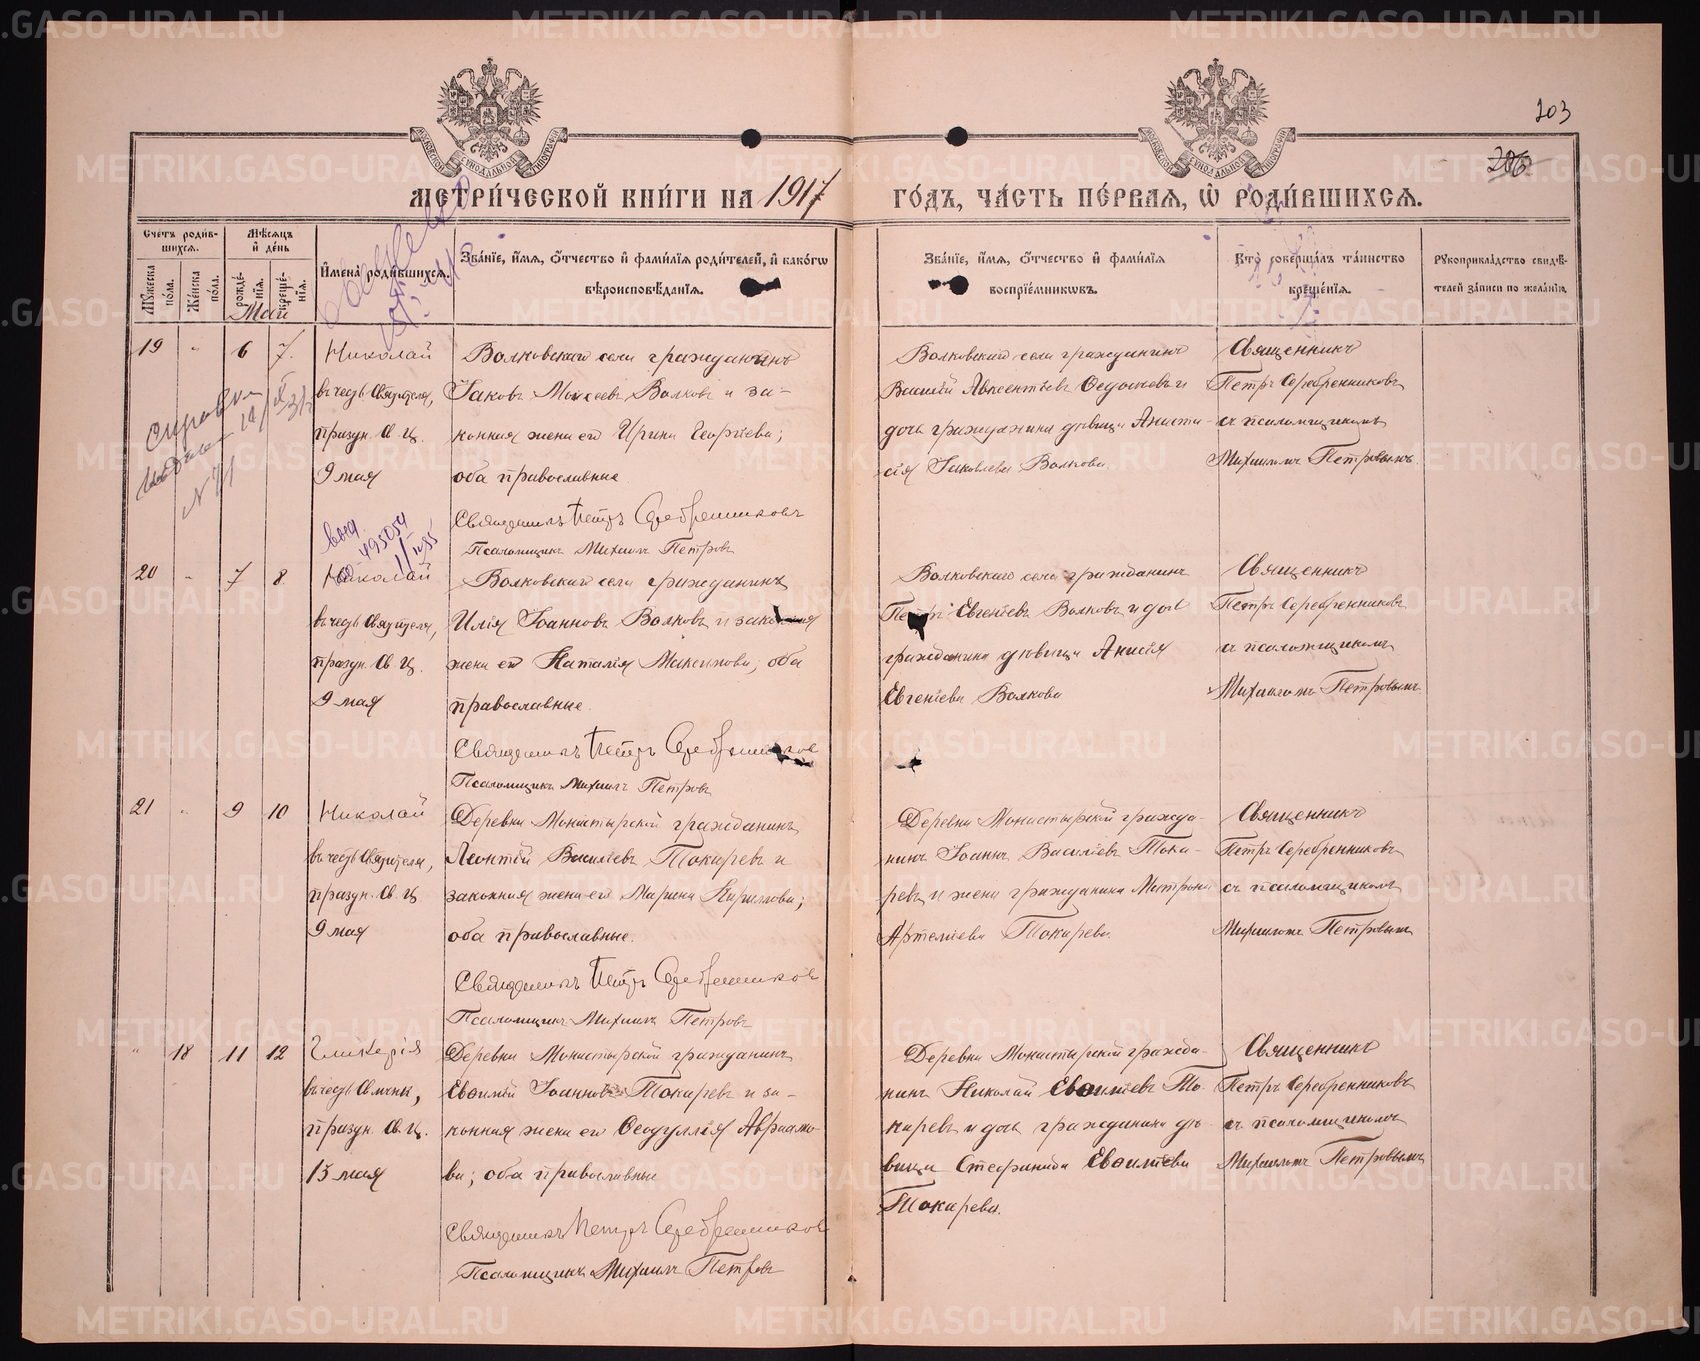 203
206
МЕТРИ́ЧЕСКОЙ КНИ́ГИ НА 1917 ГО́ДЪ, ЧА́СТЬ ПЕ́РВАЯ, Ѡ҆ РОДИ́ВШИХСЯ.
Сче́тъ роди́в-
шихся.
Мѣ́сяцъ
и҆ де́нь
Му́жеска
по́ла.
Же́нска
по́ла.
рожде́-
нїя.
креще́-
нїя.
И҆мена̀ роди́вшихся.
Зва́нїе, и҆́мя, ѻ҆́тчество и҆ фами́лїя роди́телей, и҆ како́гѡ
вѣроисповѣ́данїя.
Зва́нїе, и҆́мя, ѻ҆́тчество и҆ фами́лїя
воспрїе́мникѡвъ.
Кто̀ соверша́лъ та́инство
креще́нїя.
Рꙋкоприкла́дство свидѣ́-
телей за́писи по жела́нїю.
Май
19 " 6 7.
Николай
въ честь Святителя,
праздн. Св. Ц.
9 мая
Волковскаго села гражданинъ
Iаковъ Моисеевъ Волковъ и за-
конная жена его Ирина Георгіева;
оба православные.
Священникъ Петръ Серебренниковъ
Псаломщикъ Михаилъ Петровъ
Волковскаго села гражданинъ
Василій Авксентіевъ Ѳедосѣевъ и
дочь гражданина дѣвица Анаста-
сія Iаковлева Волкова.
Священникъ
Петръ Серебренниковъ
съ псаломщикомъ
Михаиломъ Петровымъ.
справка
выдана
20 " 7 8
Николай
въ честь Святителя,
праздн. Св. Ц.
9 мая
Волковскаго села гражданинъ
Илія Iоанновъ Волковъ и законная
жена его Наталія Максимова; оба
православные.
Священникъ Петръ Серебренниковъ
Псаломщикъ Михаилъ Петровъ
Волковскаго села гражданинъ
Петръ Евгеніевъ Волковъ и дочь
гражданина дѣвица Анисія
Евгеніева Волкова
Священникъ
Петръ Серебренниковъ
съ псаломщикомъ
Михаиломъ Петровымъ.
21 " 9 10
Николай
въ честь Святителя,
праздн. Св. Ц.
9 мая
Деревни Монастырской гражданинъ
Леонтій Василіевъ Токаревъ и
законная жена его Марина Кириллова;
оба православные.
Священникъ Петръ Серебренниковъ
Псаломщикъ Михаилъ Петровъ
Деревни Монастырской гражда-
нинъ Iоаннъ Василіевъ Тока-
ревъ и жена гражданина Матрона
Артеміева Токарева.
Священникъ
Петръ Серебренниковъ
съ псаломщикомъ
Михаиломъ Петровымъ
" 18 11 12
Гликерія
въ честь Св. мчны,
праздн. Св. Ц.
13 мая
Деревни Монастырской гражданинъ
Евѳимій Iоанновъ Токаревъ и за-
конная жена его Ѳеодулія Авраамо-
ва; оба православные
Священникъ Петръ Серебренниковъ
Псаломщикъ Михаилъ Петровъ
Деревни Монастырской гражда-
нинъ Николай Евѳиміевъ То-
каревъ и дочь гражданина дѣ-
вица Стефанида Евѳиміева
Токарева.
Священникъ
Петръ Серебренниковъ
съ псаломщикомъ
Михаиломъ Петровымъ
METRIKI.GASO-URAL.RU